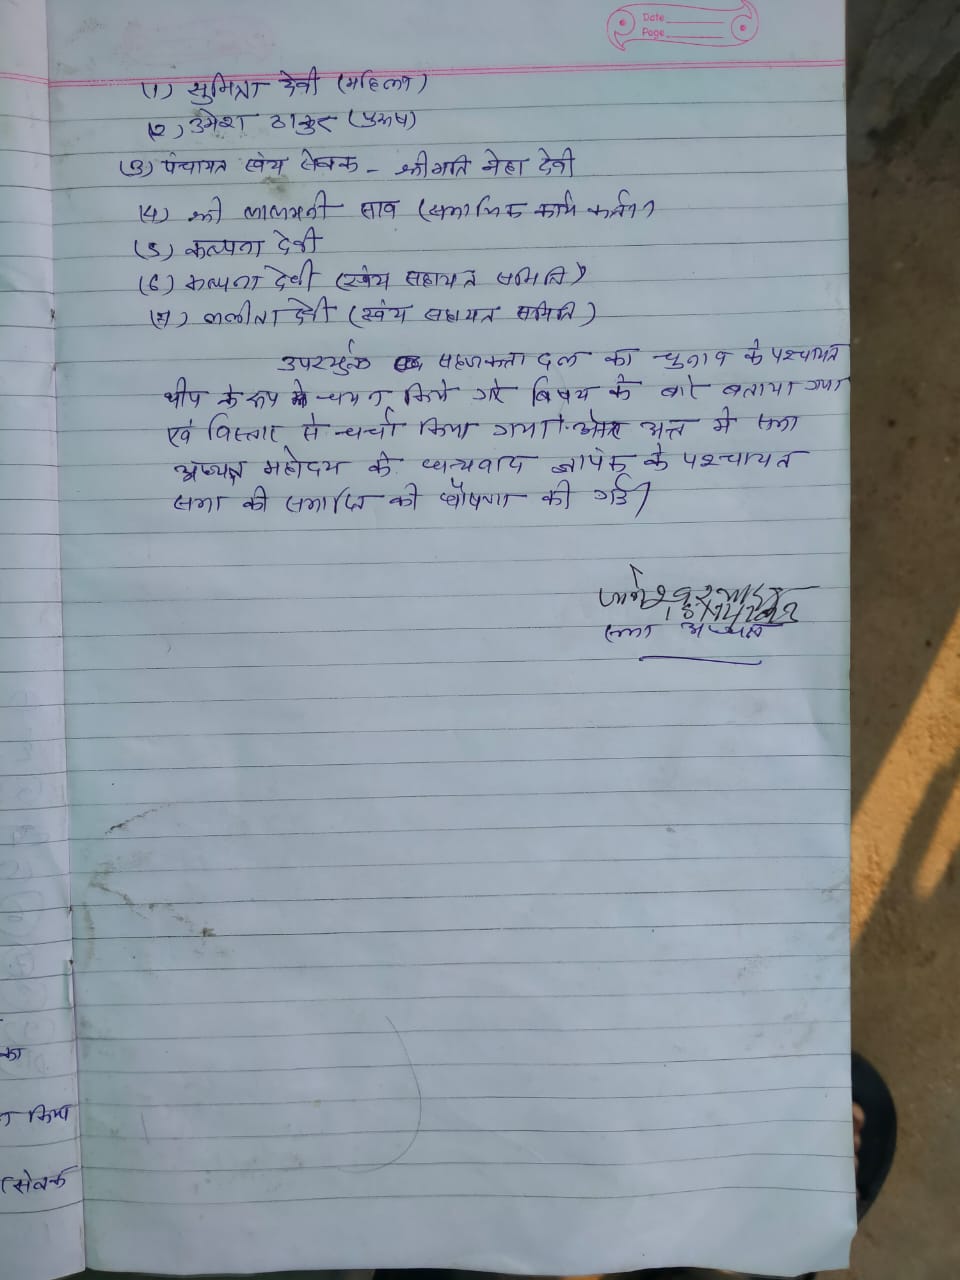 Date
Page
(1) सुमित्रा देवी (महिला)
(2) उमेश ठाकुर (पुरुष)
(3) पंचायत स्वंय सेवक - श्रीमति मेहा देवी
(4) श्री लालमनी साव (समाजिक कार्य कर्ता)
(5) कल्पना देवी
(6) कल्पना देवी (स्वंय सहायत समिति)
(7) ललीता देवी (स्वंय सहायत समिति)
उपरर्युक्त दल का चुनाव के पश्चायत
थीप के रूप में चयन किये गए विषय के बारे बताया गया
एवं विस्तार से चर्चा किया गया। और अन्त में सभा
अध्यक्ष महोदय के धन्यवाद ज्ञापन के पश्चायत
सभा की समाप्ति की घौषणा की गई।
सभा अध्यक्ष
का
किया
सेवक